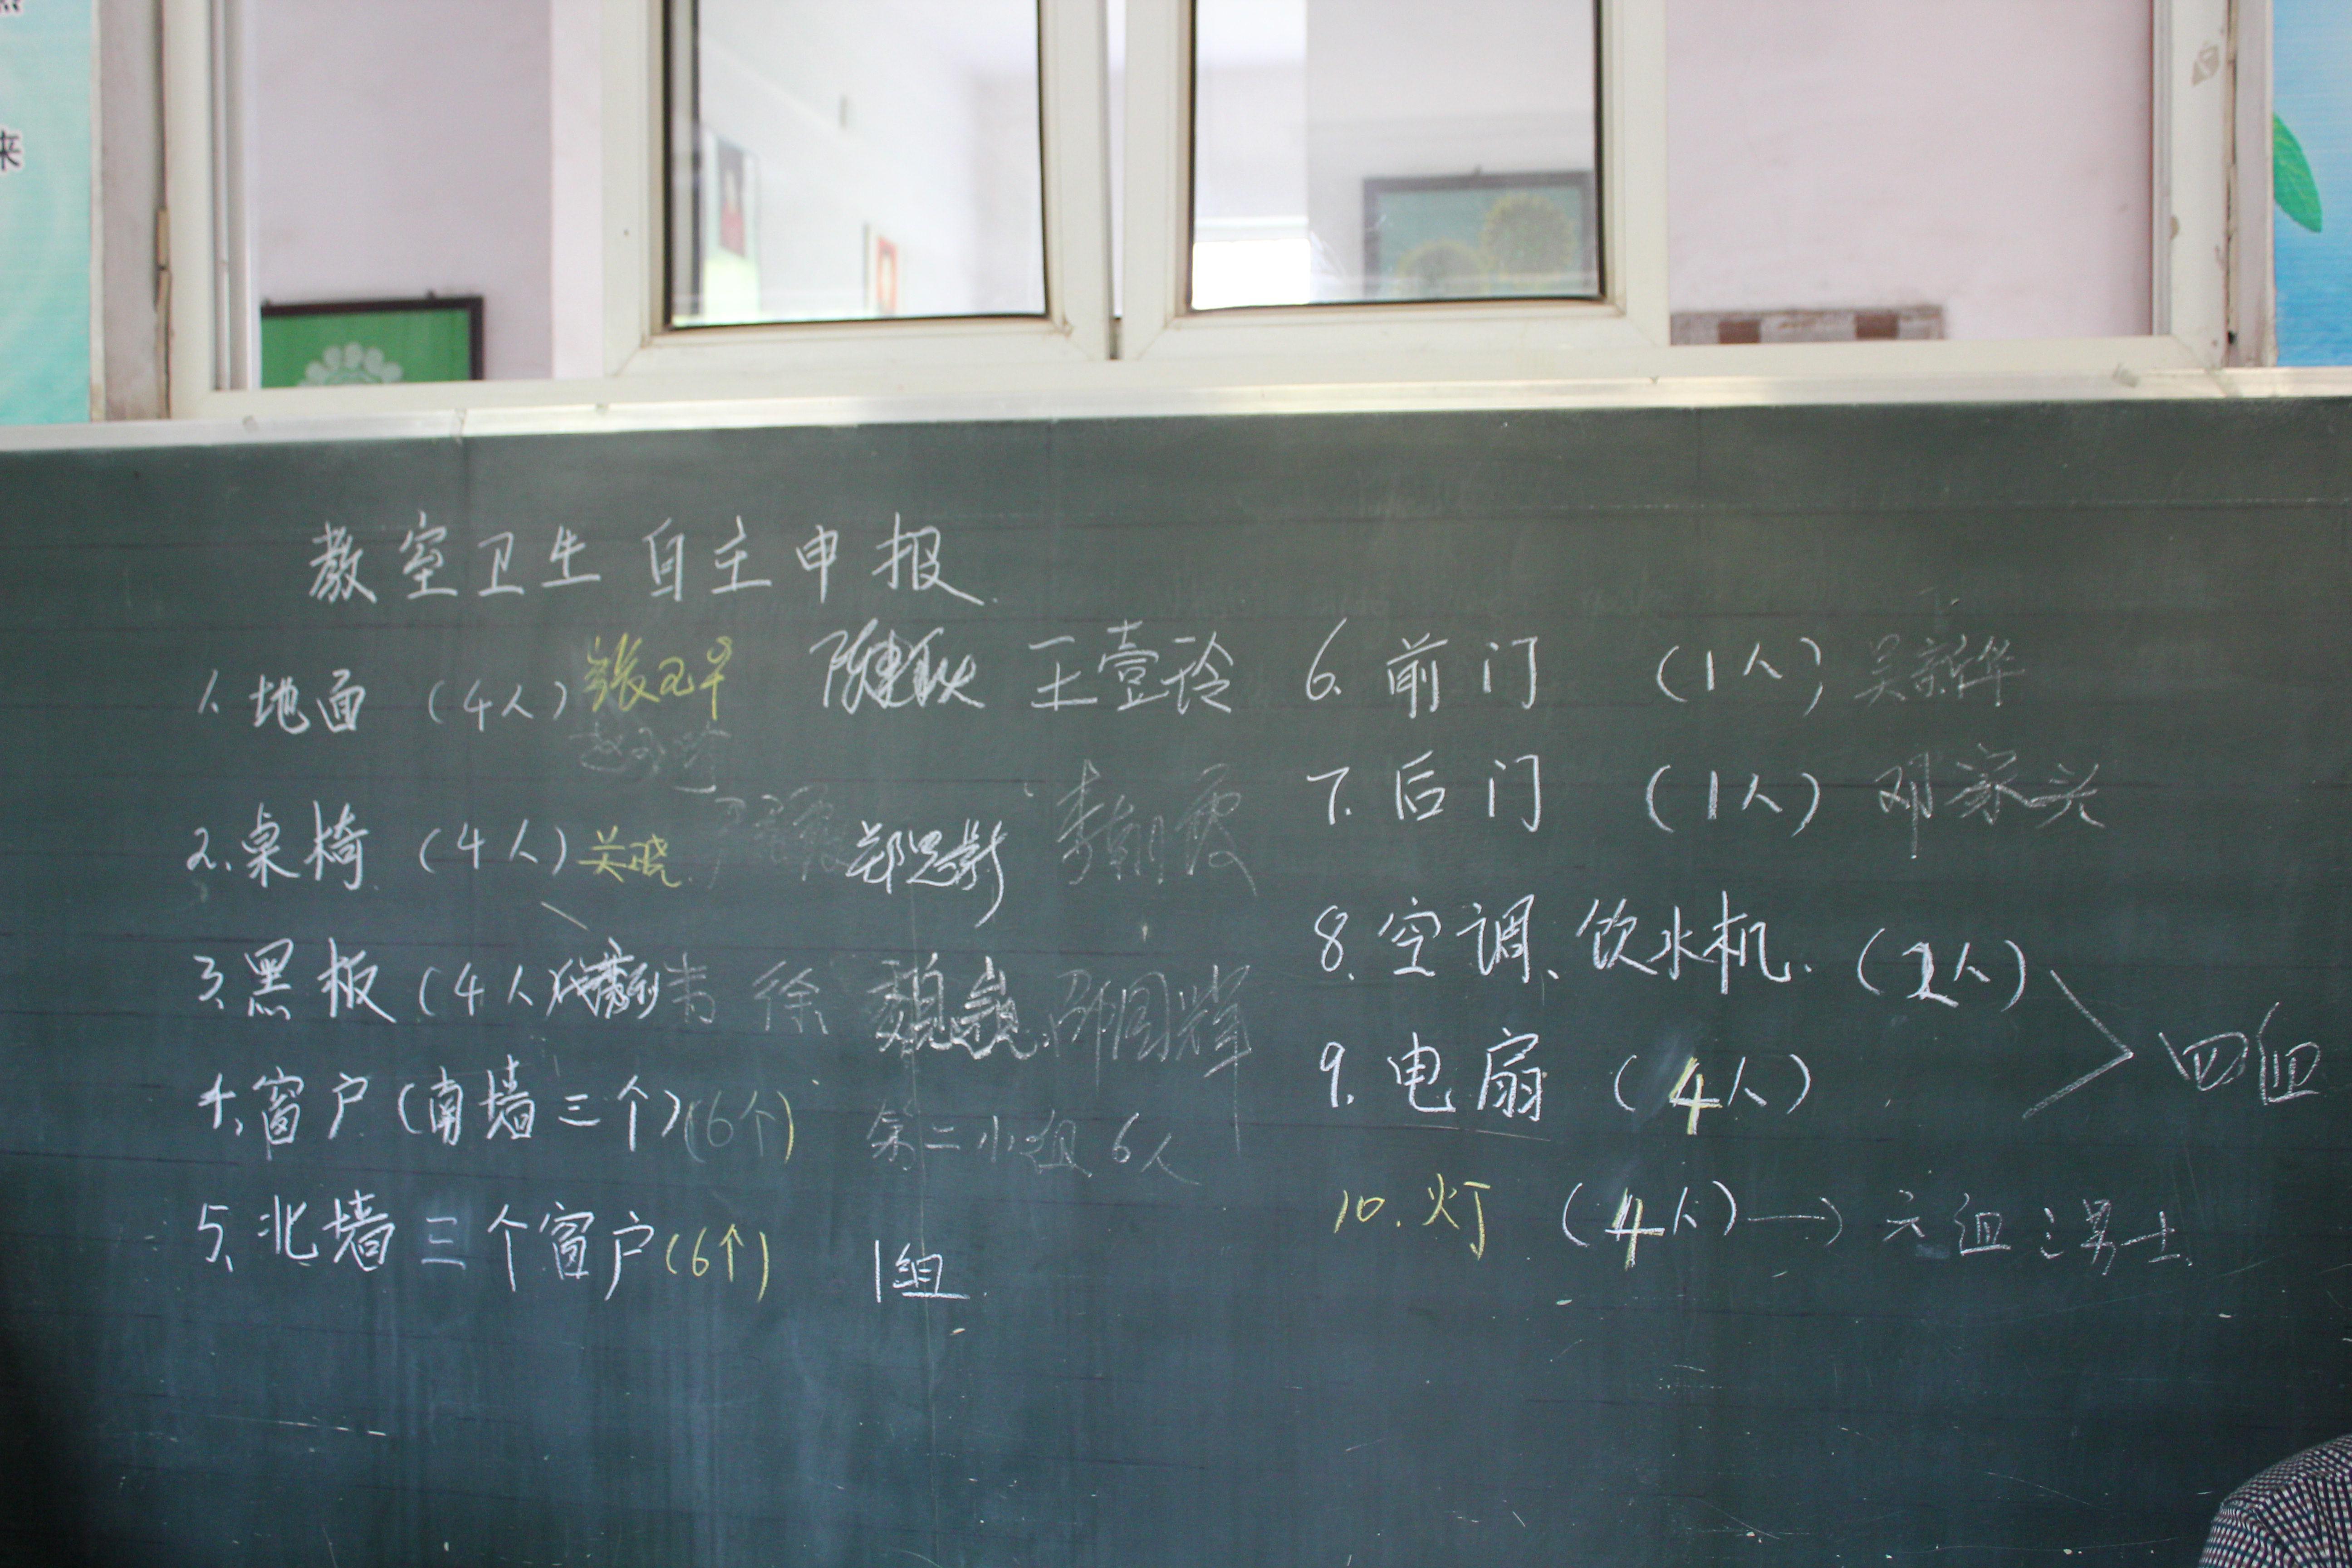 来
教室卫生自主申报
1.地面（4人）张 王壹玲
2.桌椅（4人）关晓 郑思影 李朝霞
3.黑板（4人） 徐 魏 邵国辉
4.窗户（南墙三个）（6个） 第二小组6人
5.北墙三个窗户（6个） 1组
6.前门 （1人）吴新华
7.后门 （1人）邓家兴
8.空调、饮水机.（2人）
9.电扇（4人）
四组
10.灯 （4人）→六组三男士